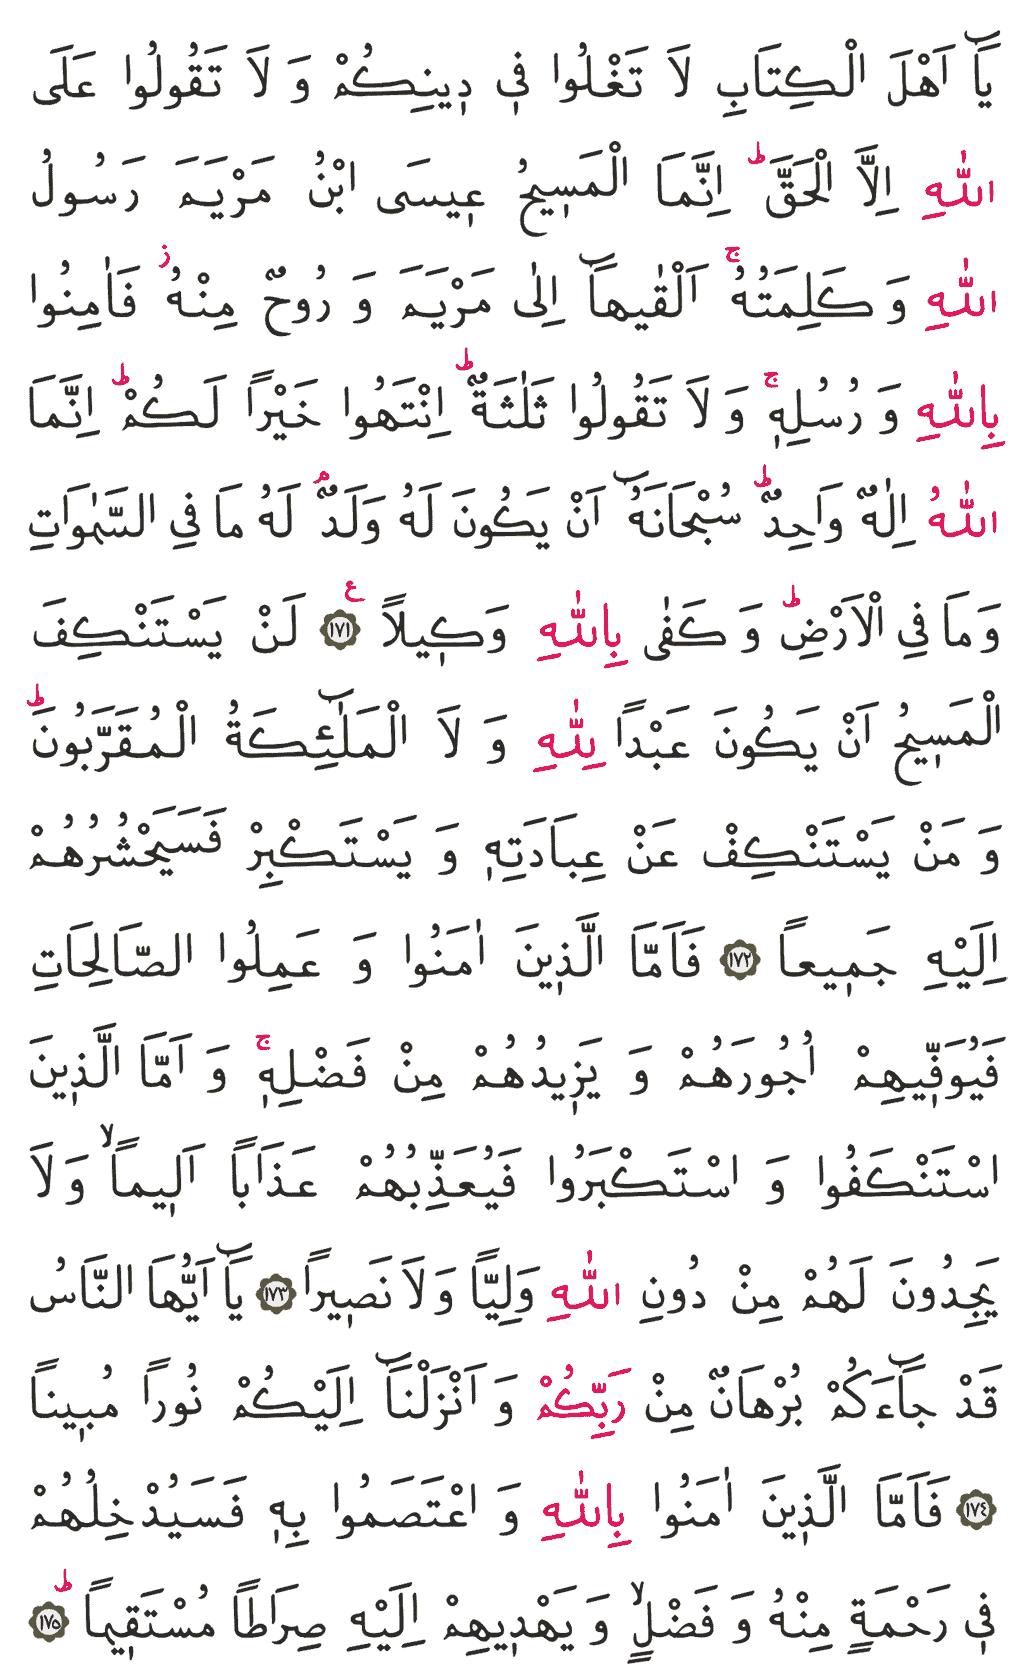 يَٓا اَهْلَ الْكِتَابِ لَا تَغْلُوا ف۪ي د۪ينِكُمْ وَ لَا تَقُولُوا عَلَى
اللّٰهِ اِلَّا الْحَقَّ ؕ اِنَّمَا الْمَس۪يحُ ع۪يسَى ابْنُ مَرْيَمَ رَسُولُ
اللّٰهِ وَ كَلِمَتُهُ ۚ اَلْقٰيهَٓا اِلٰى مَرْيَمَ وَ رُوحٌ مِنْهُ ؗ فَاٰمِنُوا
بِاللّٰهِ وَ رُسُلِه۪ ۚ وَ لَا تَقُولُوا ثَلٰثَةٌ ؕ اِنْتَهُوا خَيْرًا لَكُمْ ؕ اِنَّمَا
اللّٰهُ اِلٰهٌ وَاحِدٌ ؕ سُبْحَانَهُٓ اَنْ يَكُونَ لَهُ وَلَدٌ ۢ لَهُ مَا فِي السَّمٰوَاتِ
وَ مَا فِي الْاَرْضِ ؕ وَ كَفٰى بِاللّٰهِ وَك۪يلًا ۧ ﴿١٧١﴾ لَنْ يَسْتَنْكِفَ
الْمَس۪يحُ اَنْ يَكُونَ عَبْدًا لِلّٰهِ وَ لَا الْمَلٰٓئِكَةُ الْمُقَرَّبُونَ ؕ
وَ مَنْ يَسْتَنْكِفْ عَنْ عِبَادَتِه۪ وَ يَسْتَكْبِرْ فَسَيَحْشُرُهُمْ
اِلَيْهِ جَم۪يعًا ﴿١٧٢﴾ فَاَمَّا الَّذ۪ينَ اٰمَنُوا وَ عَمِلُوا الصَّالِحَاتِ
فَيُوَفّ۪يهِمْ اُجُورَهُمْ وَ يَز۪يدُهُمْ مِنْ فَضْلِه۪ ۚ وَ اَمَّا الَّذ۪ينَ
اسْتَنْكَفُوا وَ اسْتَكْبَرُوا فَيُعَذِّبُهُمْ عَذَابًا اَل۪يمًا ۙ وَ لَا
يَجِدُونَ لَهُمْ مِنْ دُونِ اللّٰهِ وَلِيًّا وَ لَا نَص۪يرًا ﴿١٧٣﴾ يَٓا اَيُّهَا النَّاسُ
قَدْ جَٓاءَكُمْ بُرْهَانٌ مِنْ رَبِّكُمْ وَ اَنْزَلْنَٓا اِلَيْكُمْ نُورًا مُب۪ينًا
﴿١٧٤﴾ فَاَمَّا الَّذ۪ينَ اٰمَنُوا بِاللّٰهِ وَ اعْتَصَمُوا بِه۪ فَسَيُدْخِلُهُمْ
ف۪ي رَحْمَةٍ مِنْهُ وَ فَضْلٍ ۙ وَ يَهْد۪يهِمْ اِلَيْهِ صِرَاطًا مُسْتَق۪يمًا ؕ ﴿١٧٥﴾